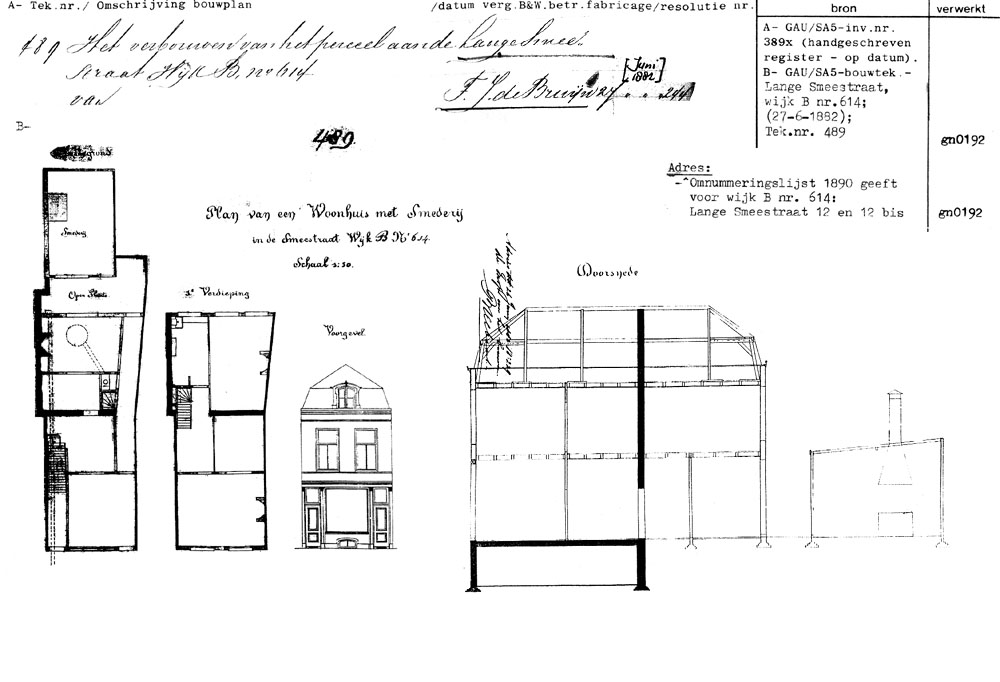 A- Tek.nr./ Omschrijving bouwplan /datum verg.B&W.betr.fabricage/resolutie nr.
bron verwerkt
489 Het verbouwen van het perceel aan de Lange Smee-
straat Wijk B. no 614
van F. J. de Bruijn 27 " " 244
[Juni 1882]
A- GAU/SA5-inv.nr.
389x (handgeschreven
register - op datum).
B- GAU/SA5-bouwtek.-
Lange Smeestraat,
wijk B nr.614;
(27-6-1882);
Tek.nr. 489
gn0192
B-
489.
Adres:
-^Omnummeringslijst 1890 geeft
voor wijk B nr. 614:
Lange Smeestraat 12 en 12 bis
gn0192
Plan van een Woonhuis met Smederij
in de Smeestraat Wijk B No 614
Schaal 1:50.
Smederij
Open Plaats
1e Verdieping
Voorgevel
Doorsnede